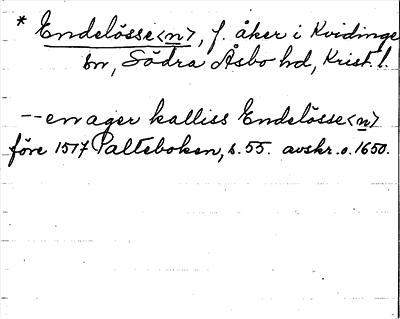 * Endelösse<n>, f. åker i Kvidinge
sn, Södra Åsbo hd, Krist. l.
-- en ager kalliss Endelösse<n>
före 1517 Palteboken, s. 55. avskr. o. 1650.